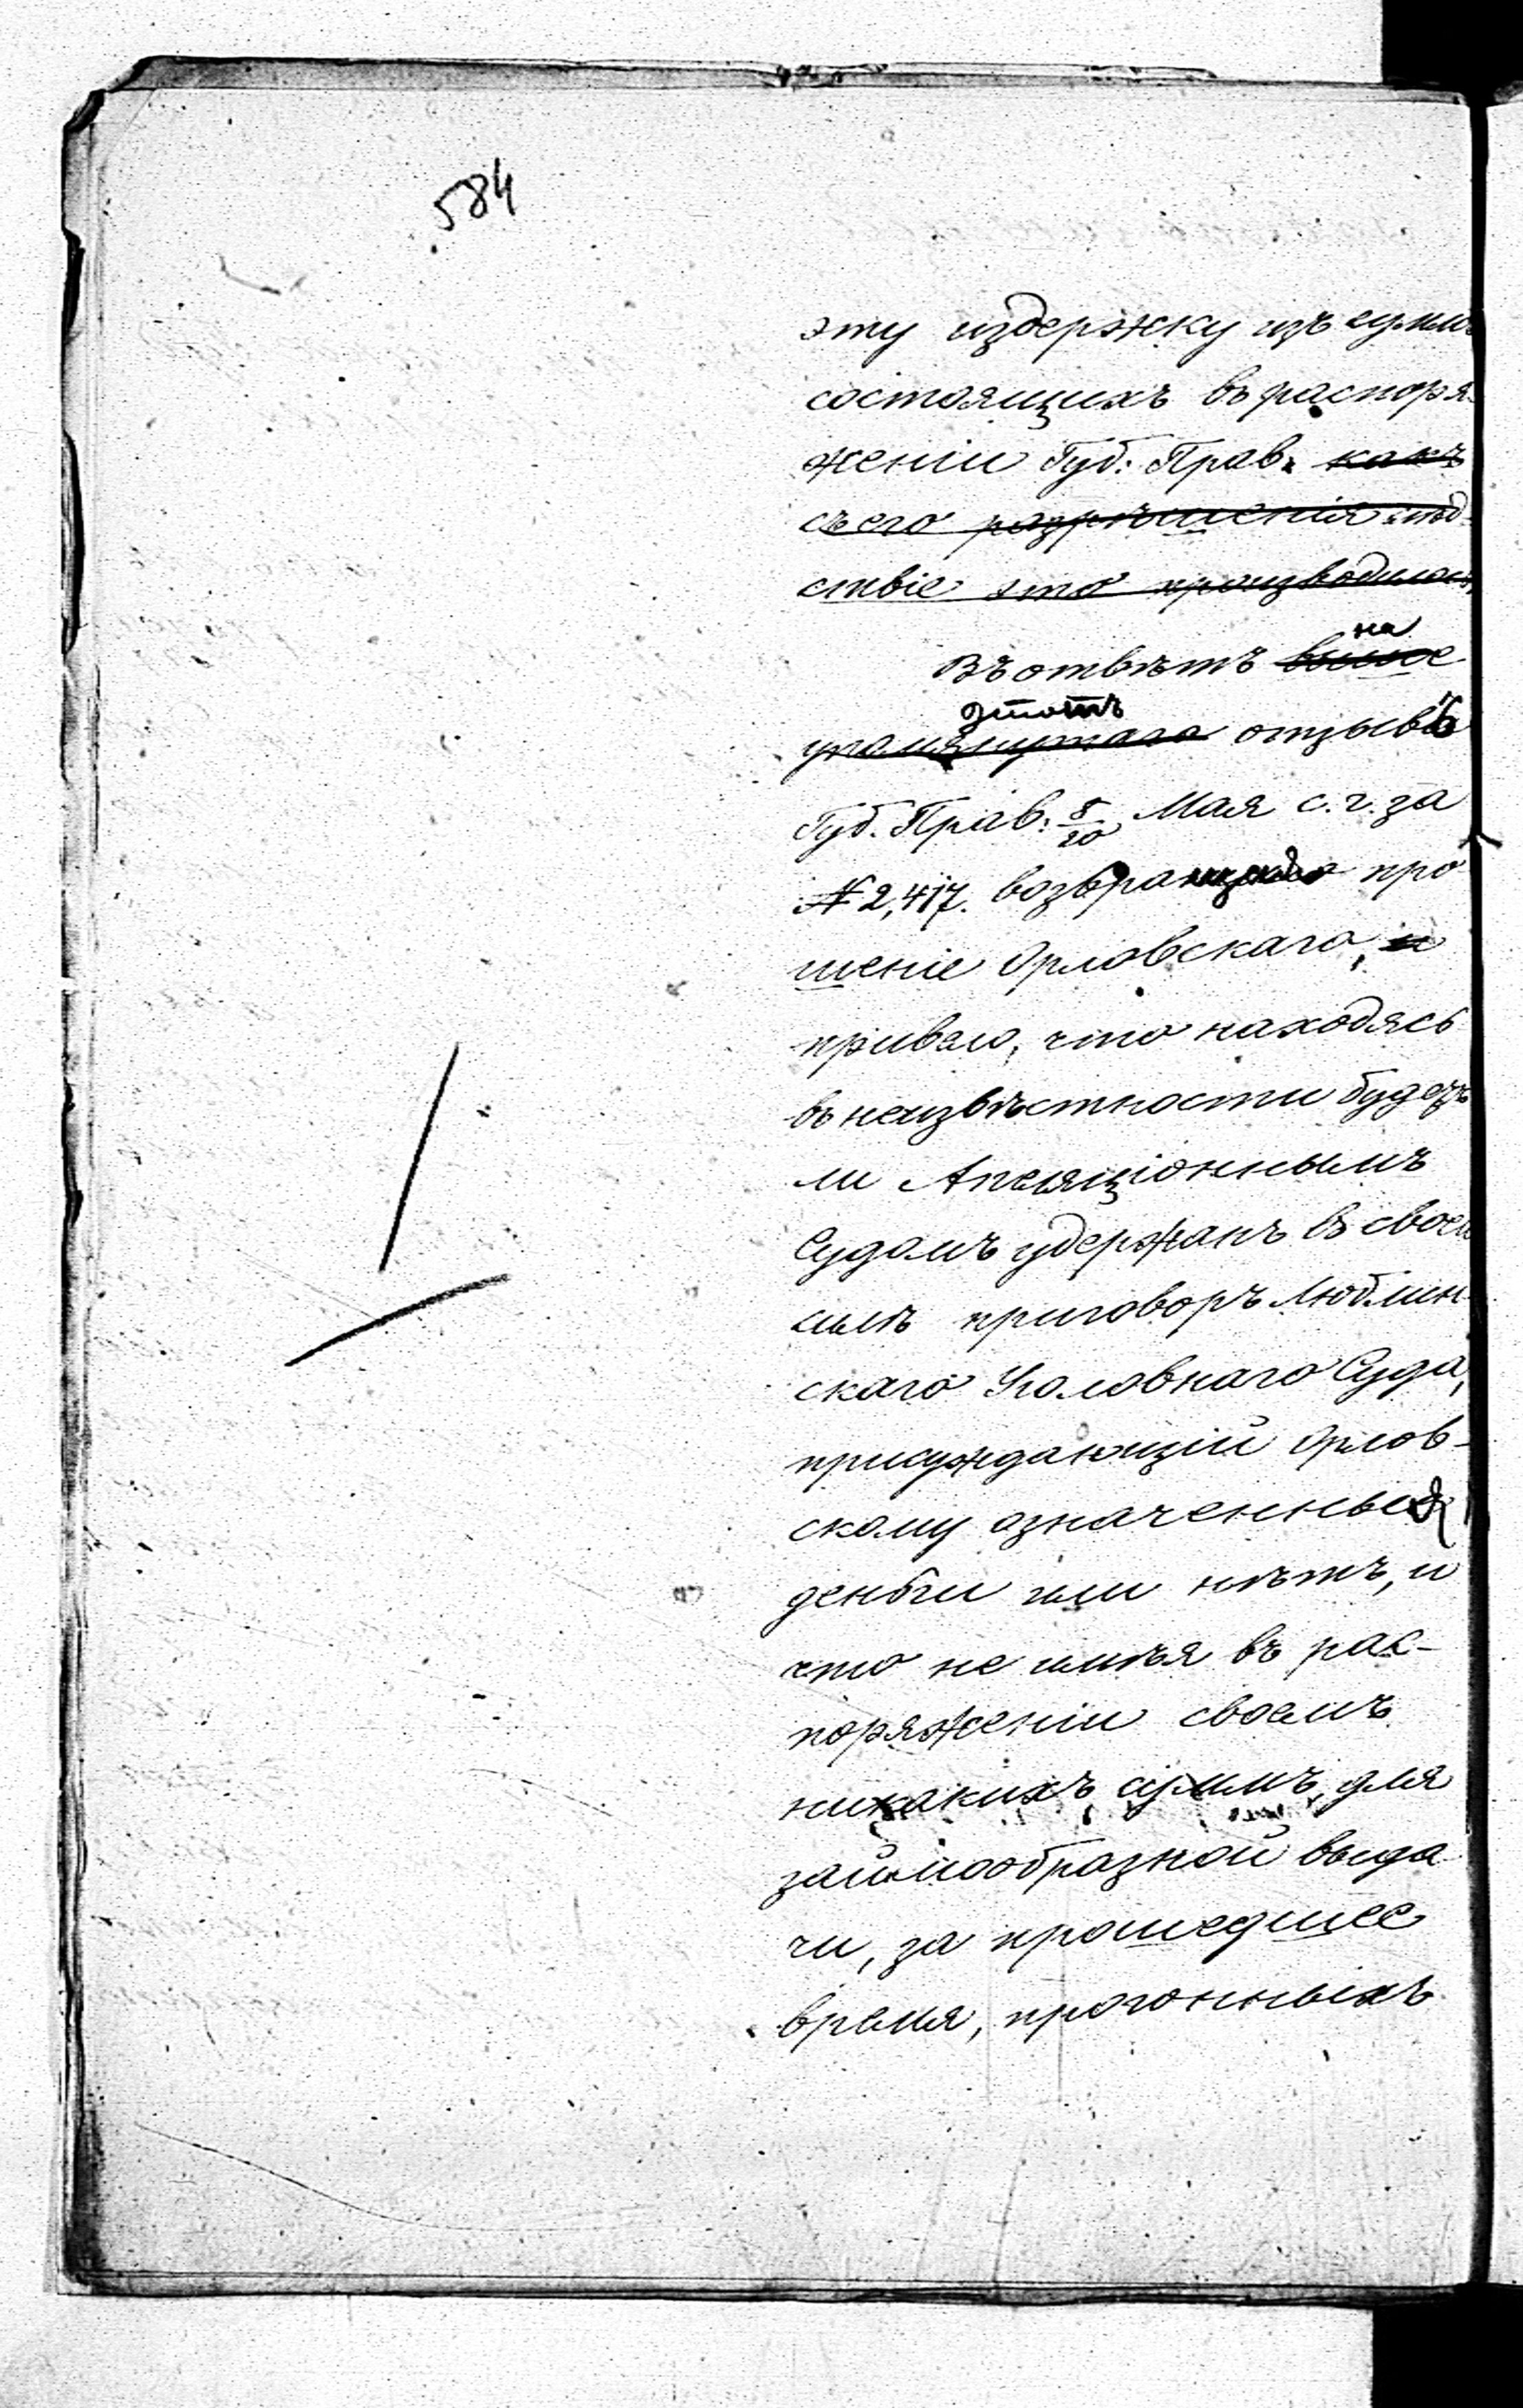 584
эту издержку изъ суммъ
состоящихъ въ распоря-
женіи Губ: Прав. какъ
съ его разрѣшенія слѣд-
ствіе это производилось,
Въ отвѣтъ выше на
упомянутаго этотъ отзывъ
Губ. Прав: 8/20 Мая с. г. за
№ 2,417. возвра про
шеніе Орловскаго, и
что находясь
въ неизвѣстности будетъ
ли Апеляціоннымъ
Судомъ удержанъ въ своей
силѣ приговоръ Люблин-
скаго Уголовнаго Суда,
присуждающій Орлов-
скому означенныя
деньги или нѣтъ, и
что не имѣя въ рас-
поряженіи своемъ
никакихъ суммъ, для
заимообразной выда
чи, за прошедшее
время, прогонныхъ